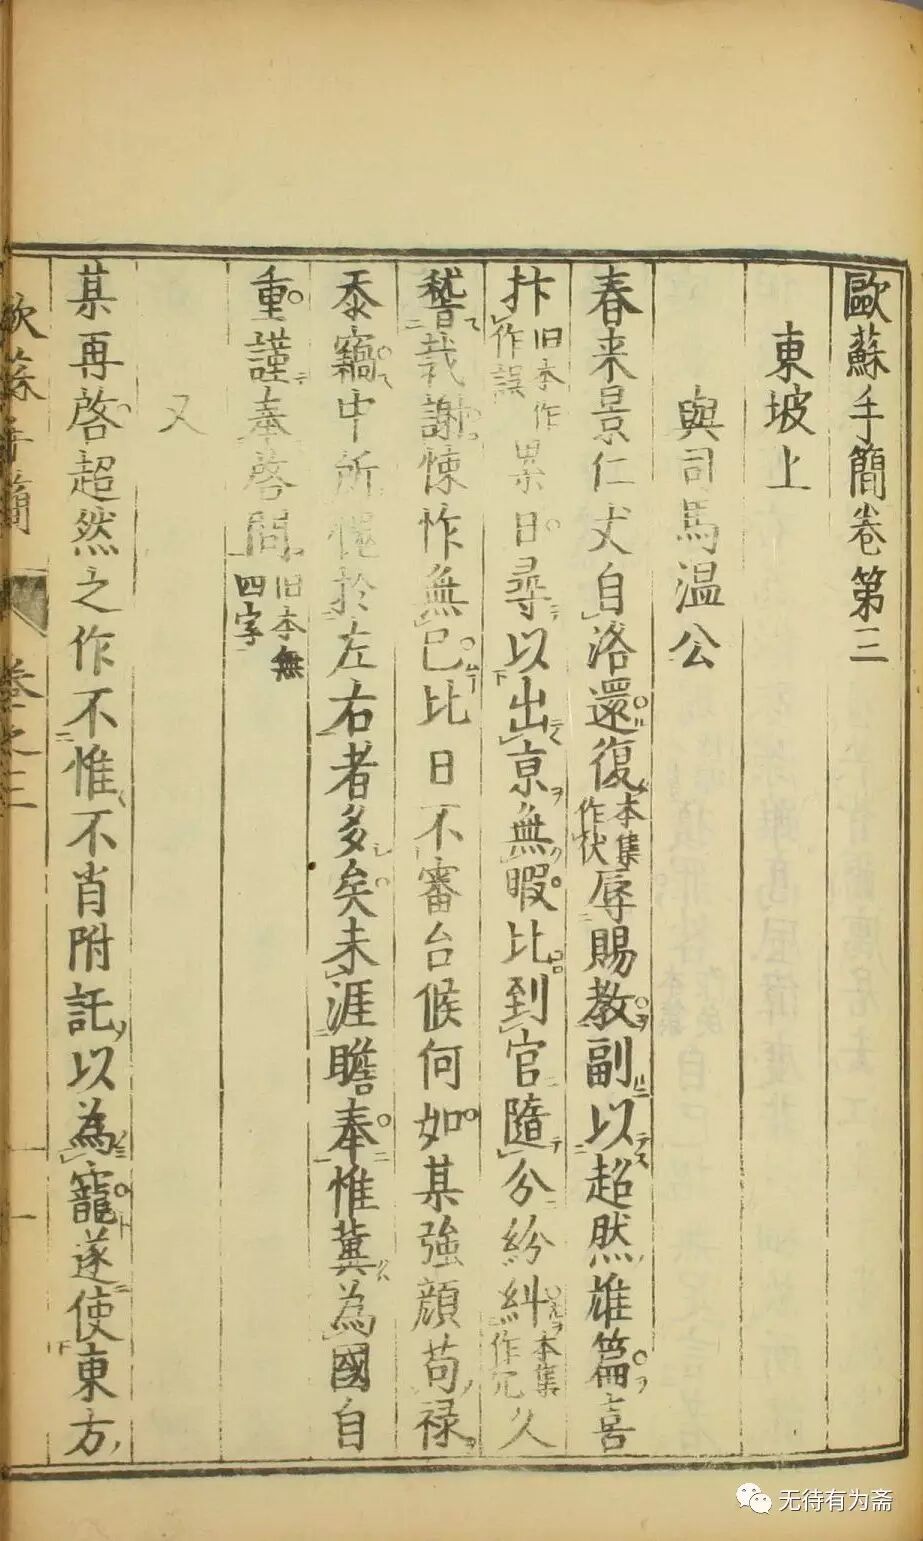 歐蘇手簡卷第三
東坡上
與司馬温公
春来景仁丈自洛還復本集作伏辱賜教副以超然雄篇喜
抃旧本作作誤累日尋以出京無暇比到官隨分紛糾本集作冗久
稽裁謝悚怍無已比日不審台候何如某強顔苟禄
忝竊中所愧於左右者多矣未涯瞻奉惟冀為國自
重謹奉啓問旧本無四字
又
某再啓超然之作不惟不肖附託以為寵遂使東方
歐蘇手簡 卷之三 一
无待有为斋